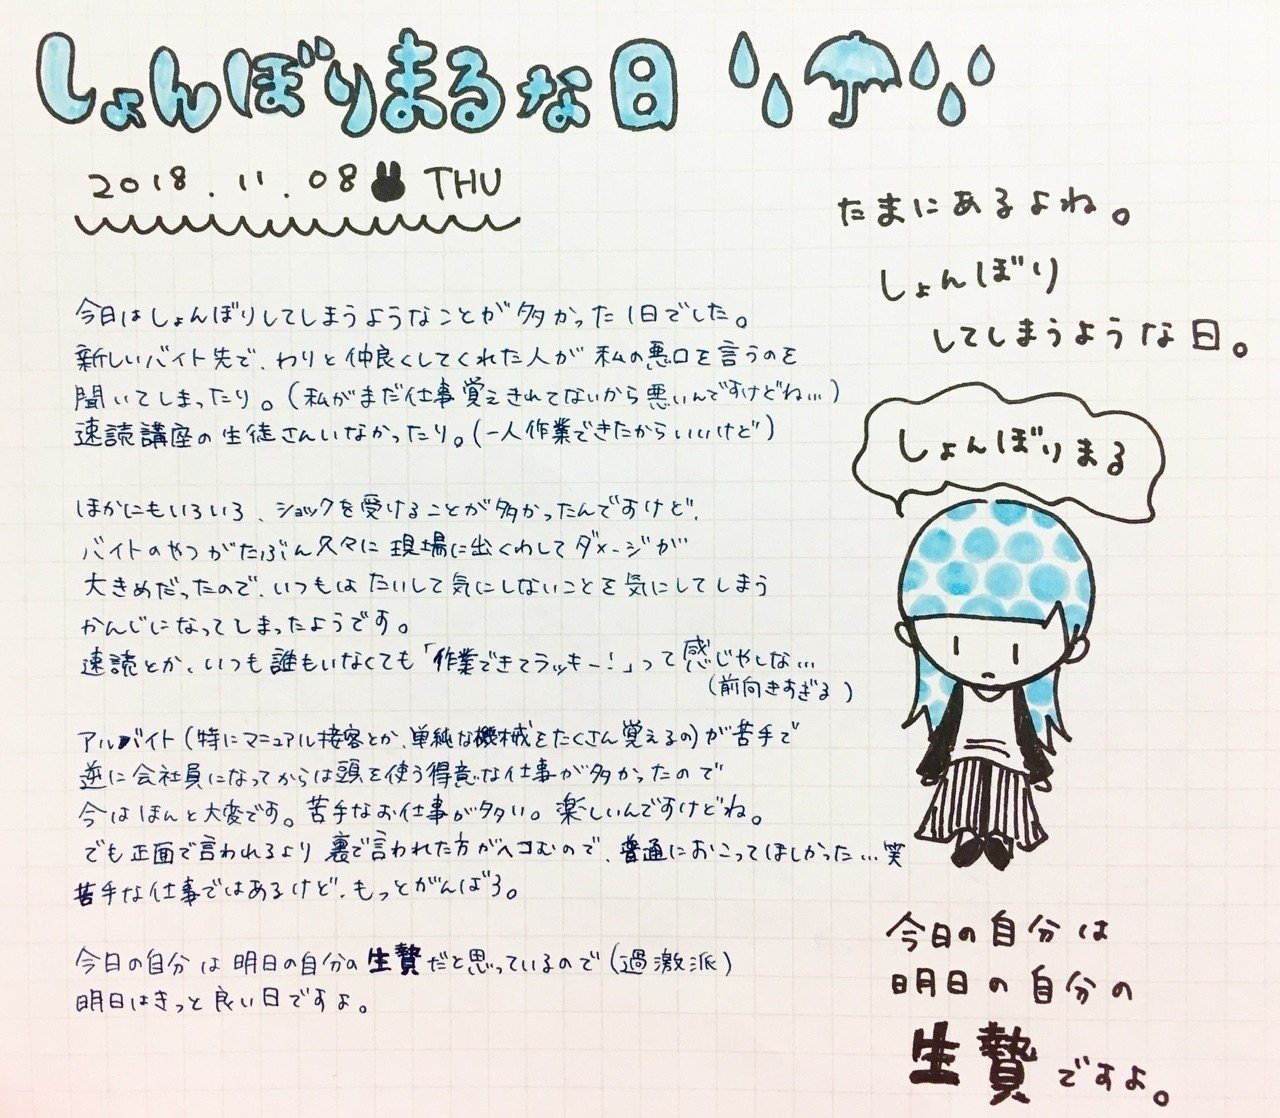 しょんぼりまるな日
2018.11.08 THU
たまにあるよね。
しょんぼり
してしまうような日。
今日はしょんぼりしてしまうようなことが多かった1日でした。
新しいバイト先で、わりと仲良くしてくれた人が私の悪口を言うのを
聞いてしまったり。(私がまだ仕事覚えきれてないから悪いんですけどね…)
速読講座の生徒さんいなかったり。(一人作業できたからいいけど)
ほかにもいろいろ、ショックを受けることが多かったんですけど、
バイトのやつがたぶん久々に現場に出くわしてダメージが
大きめだったので、いつもはたいして気にしないことを気にしてしまう
かんじになってしまったようです。
速読とか、いつも誰もいなくても「作業できてラッキー!」って感じやしな…
(前向きすぎる)
アルバイト(特にマニュアル接客とか、単純な機械をたくさん覚えるの)が苦手で
逆に会社員になってからは頭を使う得意な仕事が多かったので
今はほんと大変です。苦手なお仕事が多い。楽しいんですけどね。
でも正面で言われるより裏で言われた方がヘコむので、普通におこってほしかった…笑
苦手な仕事ではあるけど、もっとがんばろ。
今日の自分は明日の自分の生贄だと思っているので(過激派)
明日はきっと良い日ですよ。
しょんぼりまる
今日の自分は
明日の自分の
生贄ですよ。